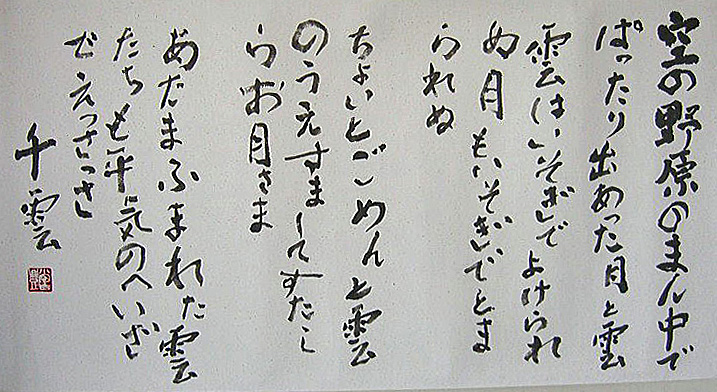 空の野原のまん中で
ぱったり出あった月と雲
雲はいそぎでよけられ
ぬ月もいそぎでとま
られぬ
ちょいとごめんと雲
のうえすましてすたこ
らお月さま
あたまふまれた雲
たちも平気のへいざ
でえっさっさ
千雲